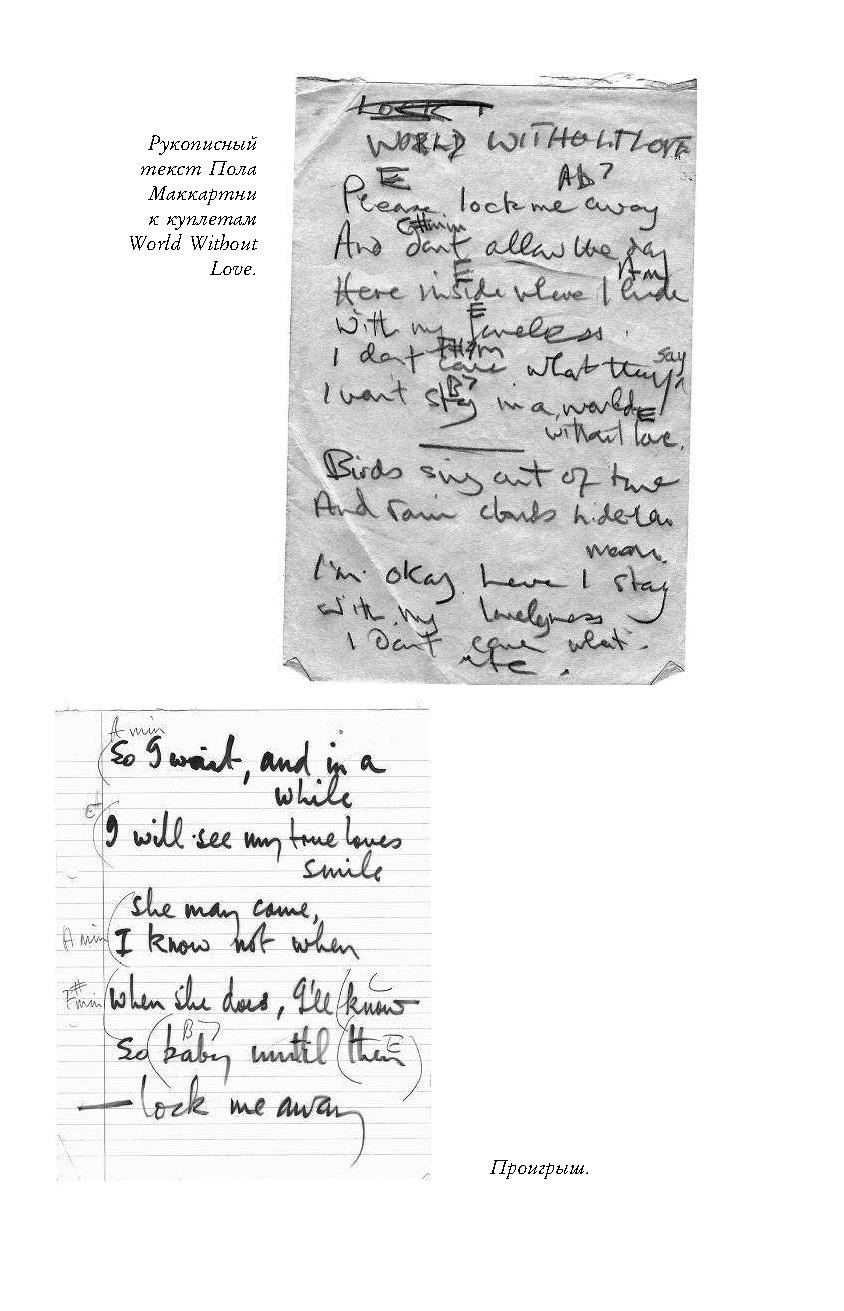 Рукописный
текст Пола
Маккартни
к куплетам
World Without
Love.
LOCK
WORLD WITHOUT LOVE
E Ab7
Please lock me away
C#min
And dont allow the day
E Am
Here inside where I hide
E
with my loneliness.
F#7m say
I dont care what they
B7
I wont stay in a world E
without love.
Birds sing out of tune
And rain clouds hide the
moon.
I'm okay here I stay
with my lonelyness
I Dont care what.
etc.
A min
So I wait, and in a
while
E
I will see my true loves
smile
she may come,
A min I know not when
F#min when she does, I'll know C
So baby until then B7 E
— lock me away
Проигрыш.